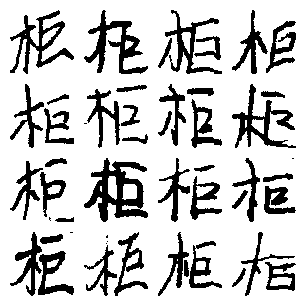 柜柜柜柜
柜柜柜柜
柜柜柜柜
柜柜柜柜